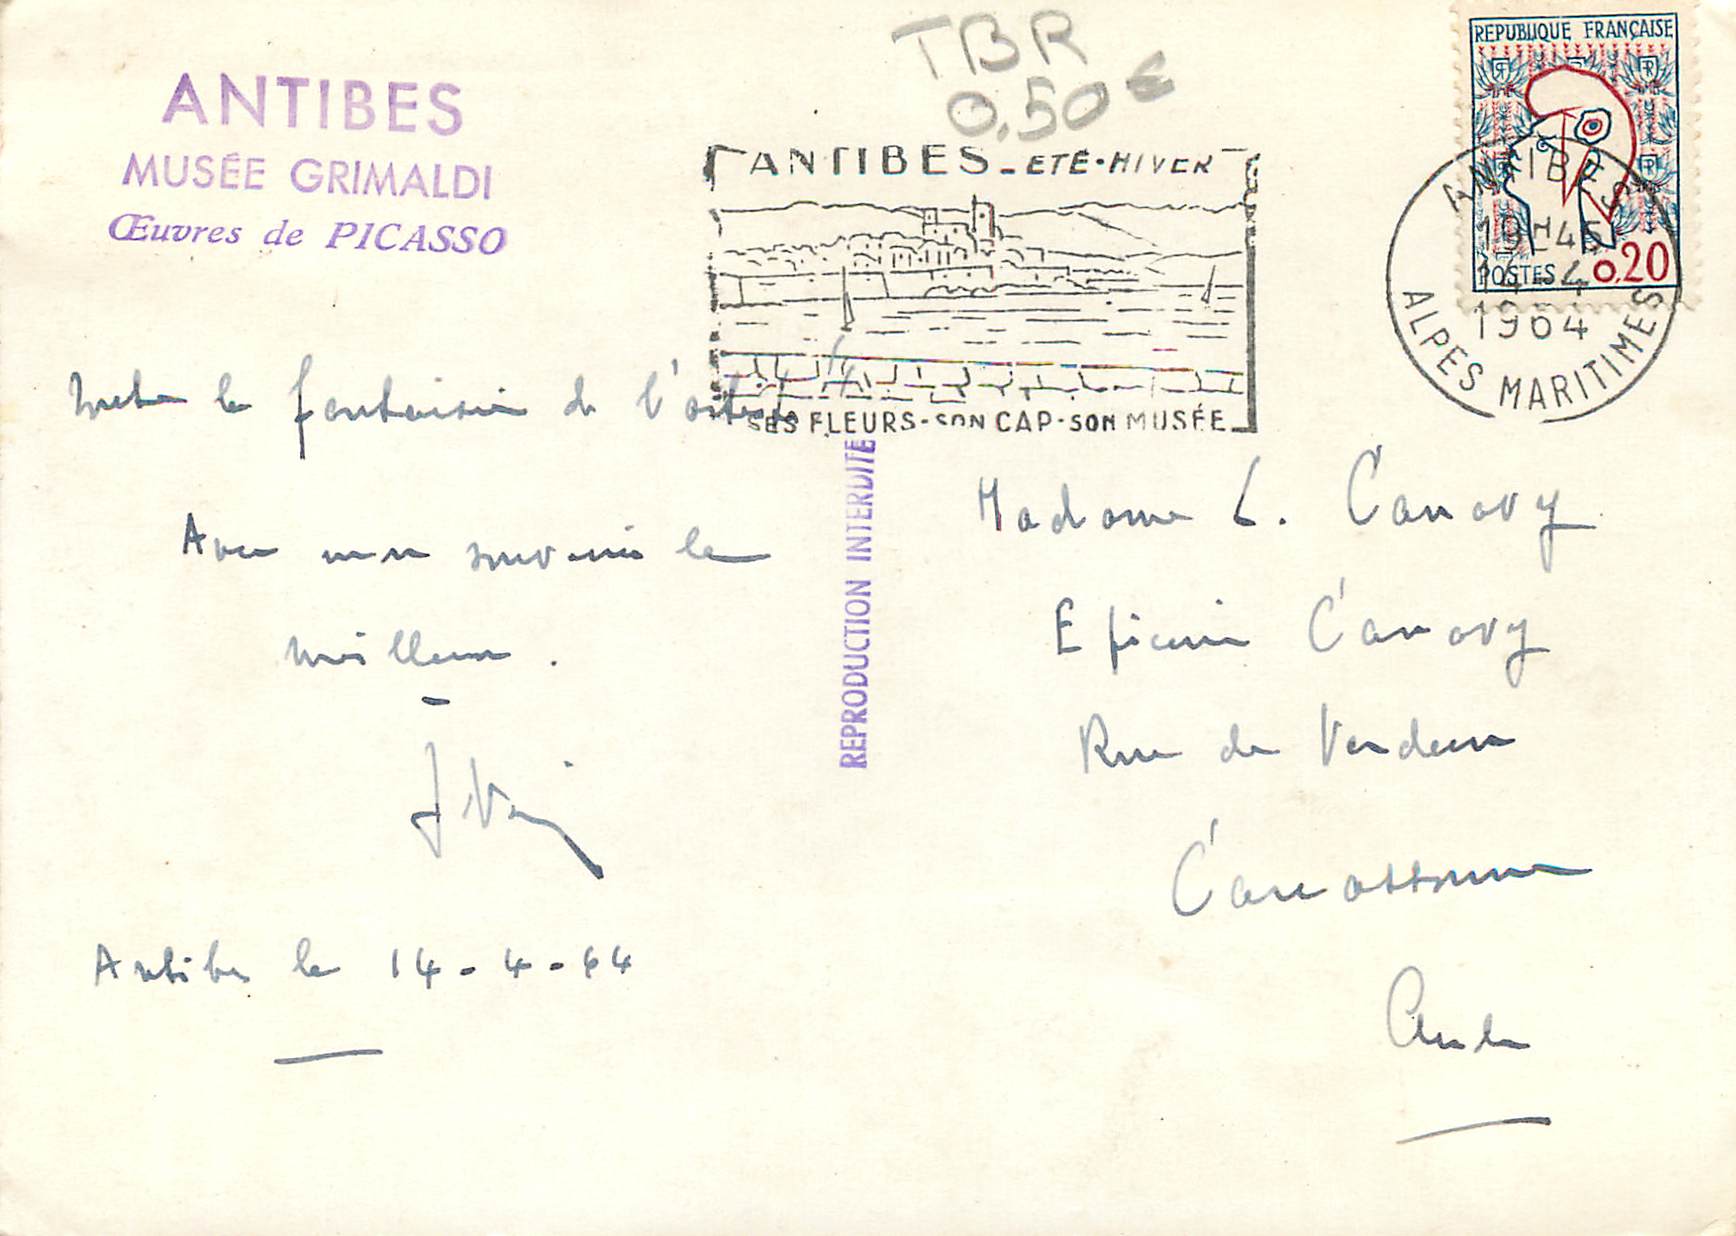 ANTIBES
MUSÉE GRIMALDI
Œuvres de PICASSO
TBR
0,50€
ANTIBES - ETÉ · HIVER
SES FLEURS - SON CAP - SON MUSÉE
REPUBLIQUE FRANÇAISE
POSTES 0,20
ANTIBES
19H45
14-4
1964
ALPES MARITIMES
la fantaisie de l'artiste !!
Avec mon souvenir le
meilleur.
Antibes le 14-4-64
REPRODUCTION INTERDITE
Madame L. Canovy
Epicerie Canovy
Rue de Verdun
Carcassonne
Aude